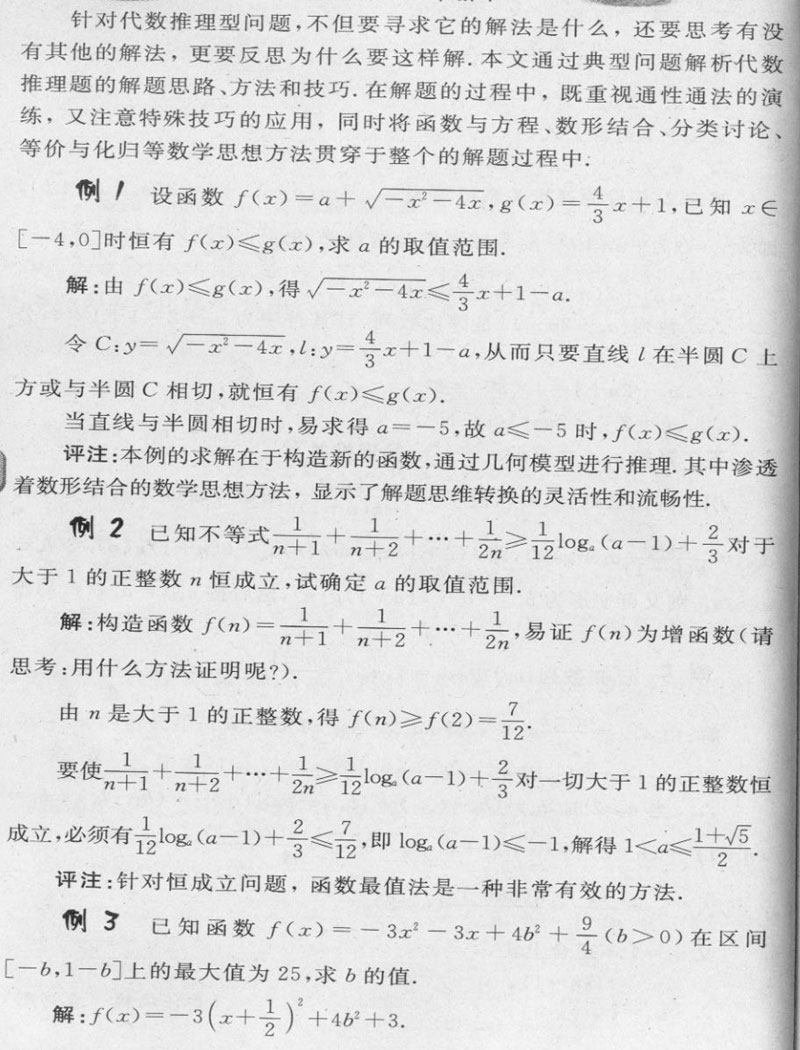 针对代数推理型问题,不但要寻求它的解法是什么,还要思考有没
有其他的解法,更要反思为什么要这样解.本文通过典型问题解析代数
推理题的解题思路、方法和技巧.在解题的过程中,既重视通性通法的演
练,又注意特殊技巧的应用,同时将函数与方程、数形结合、分类讨论、
等价与化归等数学思想方法贯穿于整个的解题过程中.
例1 设函数 f(x)=a+√(-x²-4x),g(x)=4/3x+1,已知 x∈
[-4,0]时恒有 f(x)≤g(x),求 a 的取值范围.
解:由 f(x)≤g(x),得√(-x²-4x)≤4/3x+1-a.
令 C:y=√(-x²-4x),l:y=4/3x+1-a,从而只要直线 l 在半圆 C 上
方或与半圆 C 相切,就恒有 f(x)≤g(x).
当直线与半圆相切时,易求得 a=-5,故 a≤-5 时,f(x)≤g(x).
评注:本例的求解在于构造新的函数,通过几何模型进行推理.其中渗透
着数形结合的数学思想方法,显示了解题思维转换的灵活性和流畅性.
例2 已知不等式1/(n+1)+1/(n+2)+…+1/2n≥1/12logₐ(a-1)+2/3对于
大于 1 的正整数 n 恒成立,试确定 a 的取值范围.
解:构造函数 f(n)=1/(n+1)+1/(n+2)+…+1/2n,易证 f(n)为增函数(请
思考:用什么方法证明呢?).
由 n 是大于 1 的正整数,得 f(n)≥f(2)=7/12.
要使1/(n+1)+1/(n+2)+…+1/2n≥1/12logₐ(a-1)+2/3对一切大于 1 的正整数恒
成立,必须有1/12logₐ(a-1)+2/3≤7/12,即 logₐ(a-1)≤-1,解得 1<a≤(1+√5)/2.
评注:针对恒成立问题,函数最值法是一种非常有效的方法.
例3 已知函数 f(x)=-3x²-3x+4b²+9/4(b>0)在区间
[-b,1-b]上的最大值为 25,求 b 的值.
解:f(x)=-3(x+1/2)²+4b²+3.